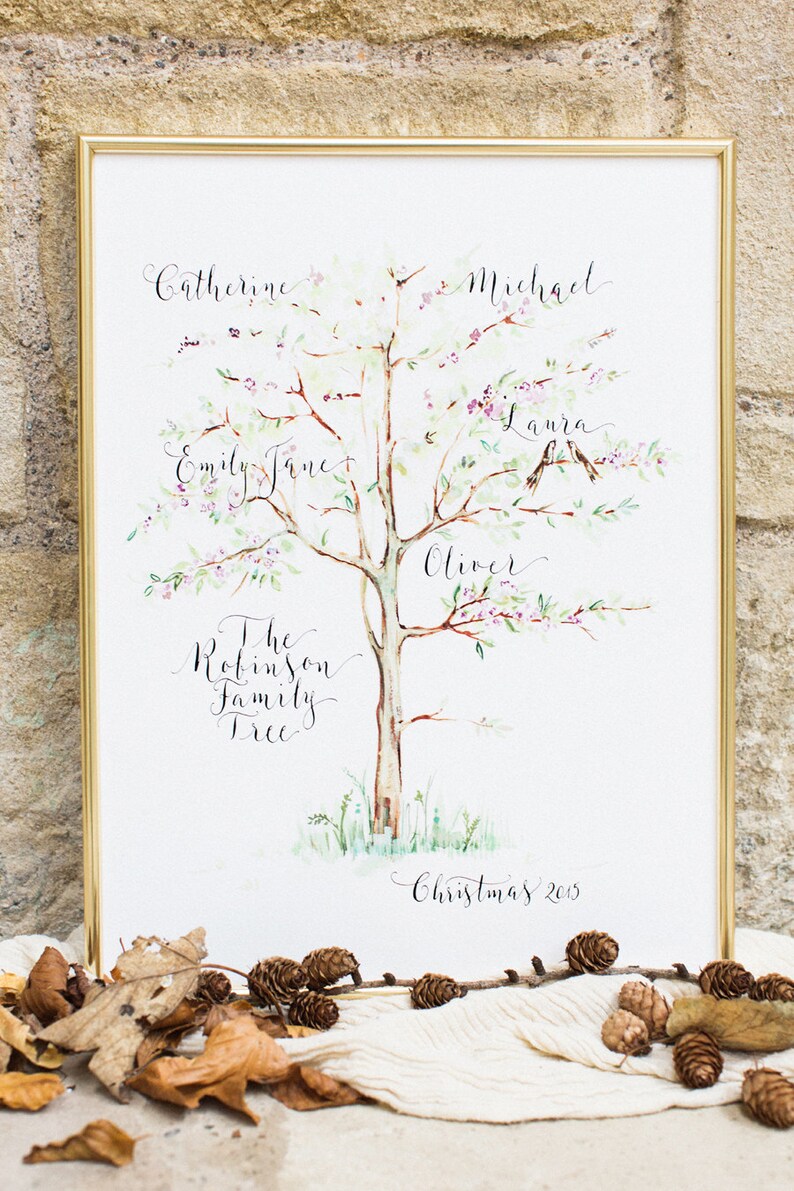 Catherine Michael
Laura
Emily Jane
Oliver
The
Robinson
Family
Tree
Christmas 2015